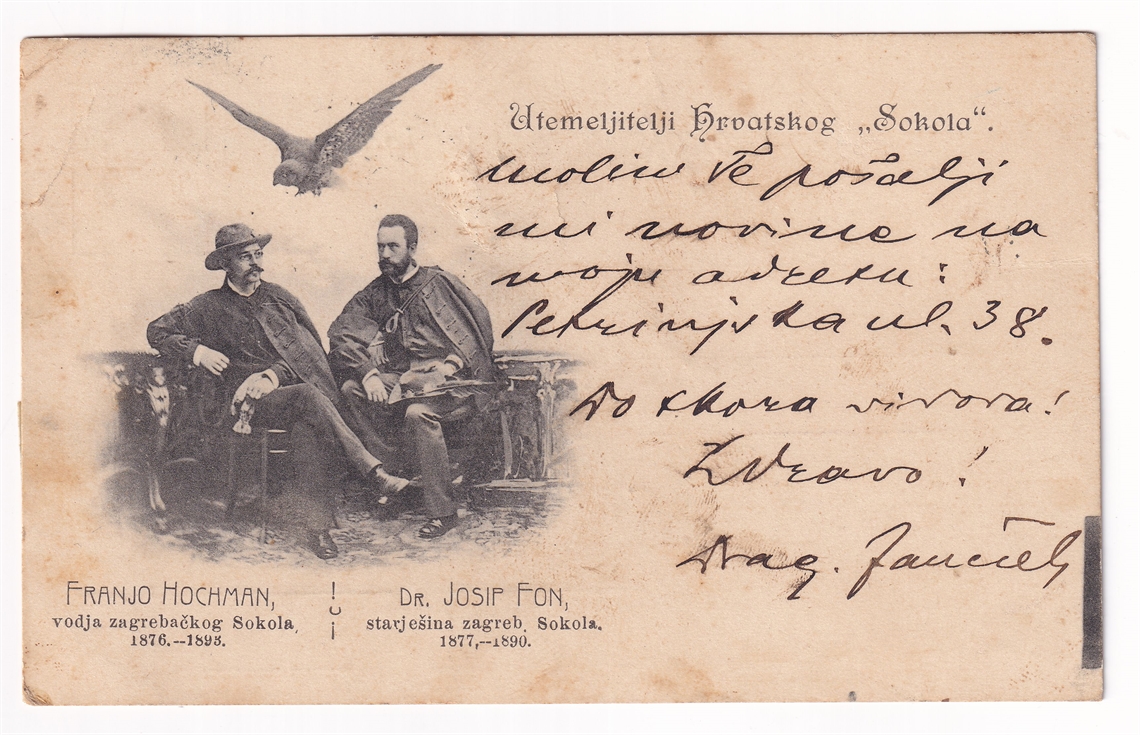 Utemeljitelji Hrvatskog „Sokola“.
Molim Te pošalji
mi novine na
moju adresu:
Petrinjska ul. 38.
Do skora vidova!
Zdravo!
Drag.
FRANJO HOCHMAN,
vodja zagrebačkog Sokola,
1876.--1893.
DR. JOSIP FON,
starješina zagreb. Sokola.
1877.--1890.